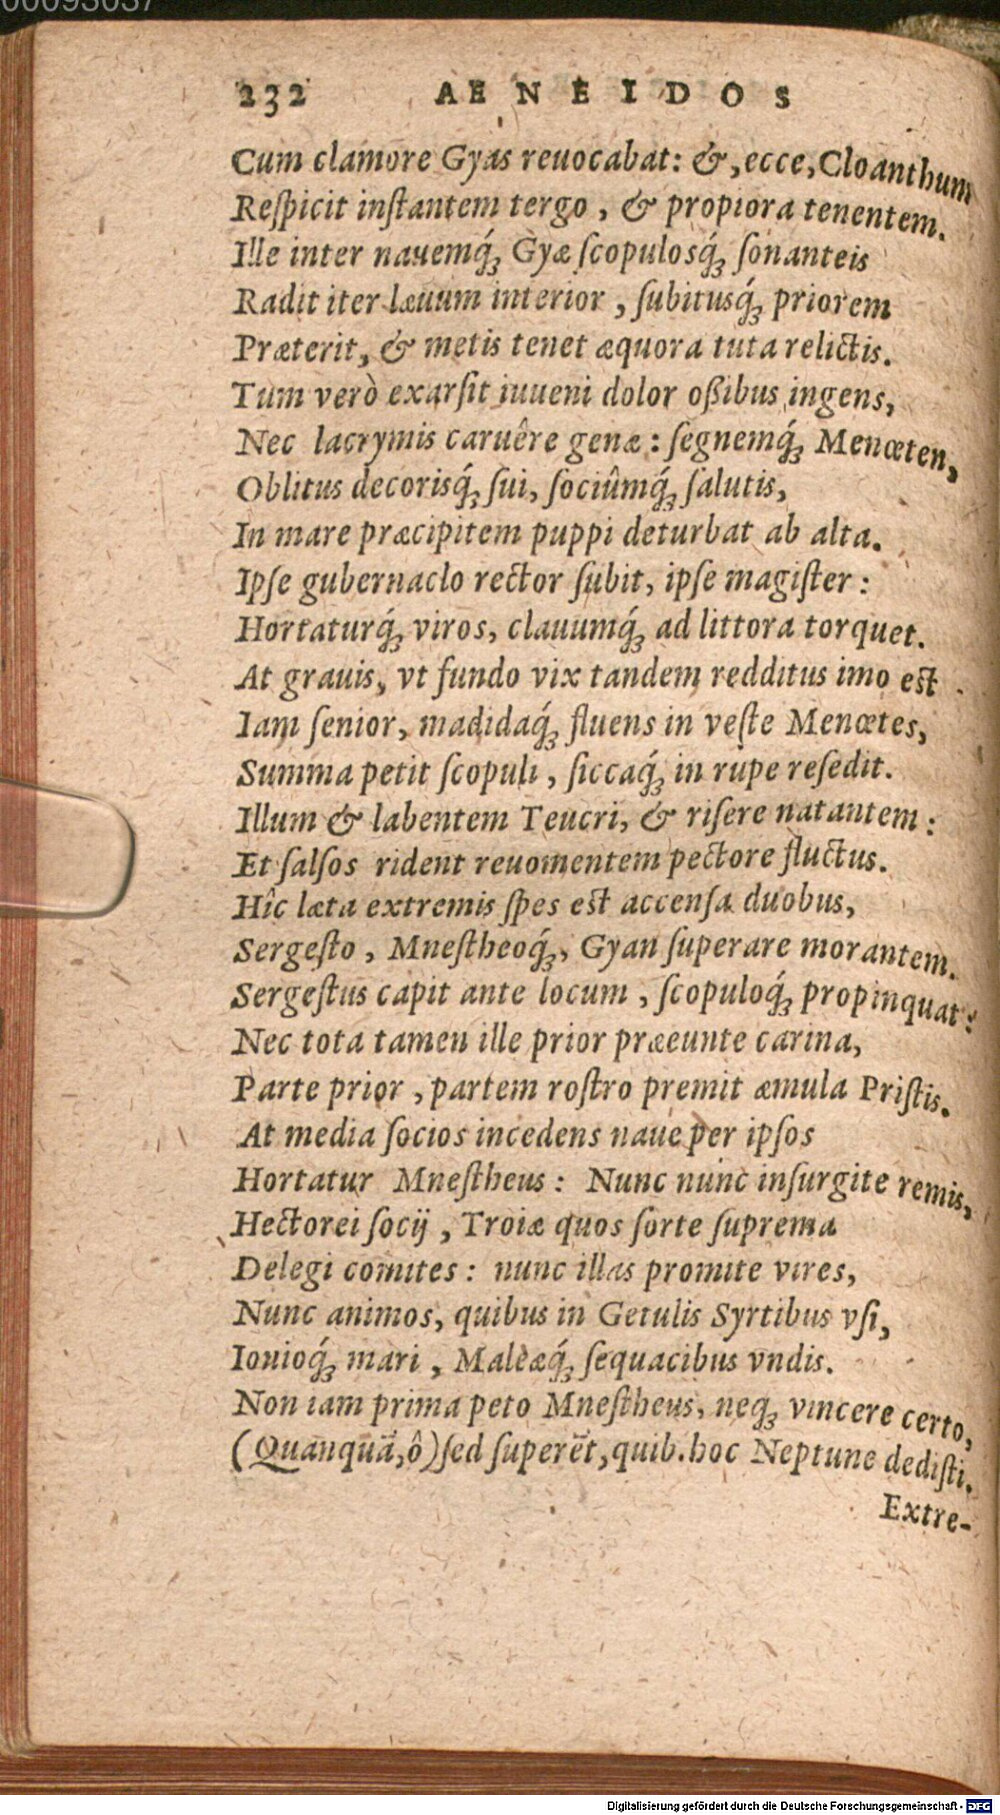 00093037
232 AENEIDOS
Cum clamore Gyas reuocabat: &, ecce, Cloanthum
Reſpicit inſtantem tergo, & propiora tenentem.
Ille inter nauemq́ꝫ Gyæ ſcopulosq́ꝫ ſonanteis
Radit iter læuum interior, ſubitusq́ꝫ priorem
Præterit, & metis tenet æquora tuta relictis.
Tum verò exarſit iuueni dolor oßibus ingens,
Nec lacrymis caruêre genæ: ſegnemq́ꝫ Menœten,
Oblitus decorisq́ꝫ ſui, ſociûmq́ꝫ ſalutis,
In mare præcipitem puppi deturbat ab alta.
Ipſe gubernaclo rector ſubit, ipſe magiſter:
Hortaturq́ꝫ viros, clauumq́ꝫ ad littora torquet.
At grauis, vt fundo vix tandem redditus imo est
Iam ſenior, madidaq́ꝫ fluens in veſte Menœtes,
Summa petit ſcopuli, ſiccaq́ꝫ in rupe reſedit.
Illum & labentem Teucri, & riſere natantem:
Et ſalſos rident reuomentem pectore fluctus.
Hîc læta extremis ſpes est accenſa duobus,
Sergeſto, Mneſtheoq́ꝫ, Gyan ſuperare morantem.
Sergeſtus capit ante locum, ſcopuloq́ꝫ propinquat:
Nec tota tamen ille prior præeunte carina,
Parte prior, partem roſtro premit æmula Priſtis.
At media ſocios incedens naue per ipſos
Hortatur Mneſtheus: Nunc nunc inſurgite remis,
Hectorei ſocij, Troiæ quos ſorte ſuprema
Delegi comites: nunc illas promite vires,
Nunc animos, quibus in Getulis Syrtibus vſi,
Ionioq́ꝫ mari, Maleæq́ꝫ ſequacibus vndis.
Non iam prima peto Mneſtheus, neqꝫ vincere certo,
(Quanquã, ô) ſed ſuperẽt, quib. hoc Neptune dediſti.
Extre-
Digitalisierung gefördert durch die Deutsche Forschungsgemeinschaft - DFG